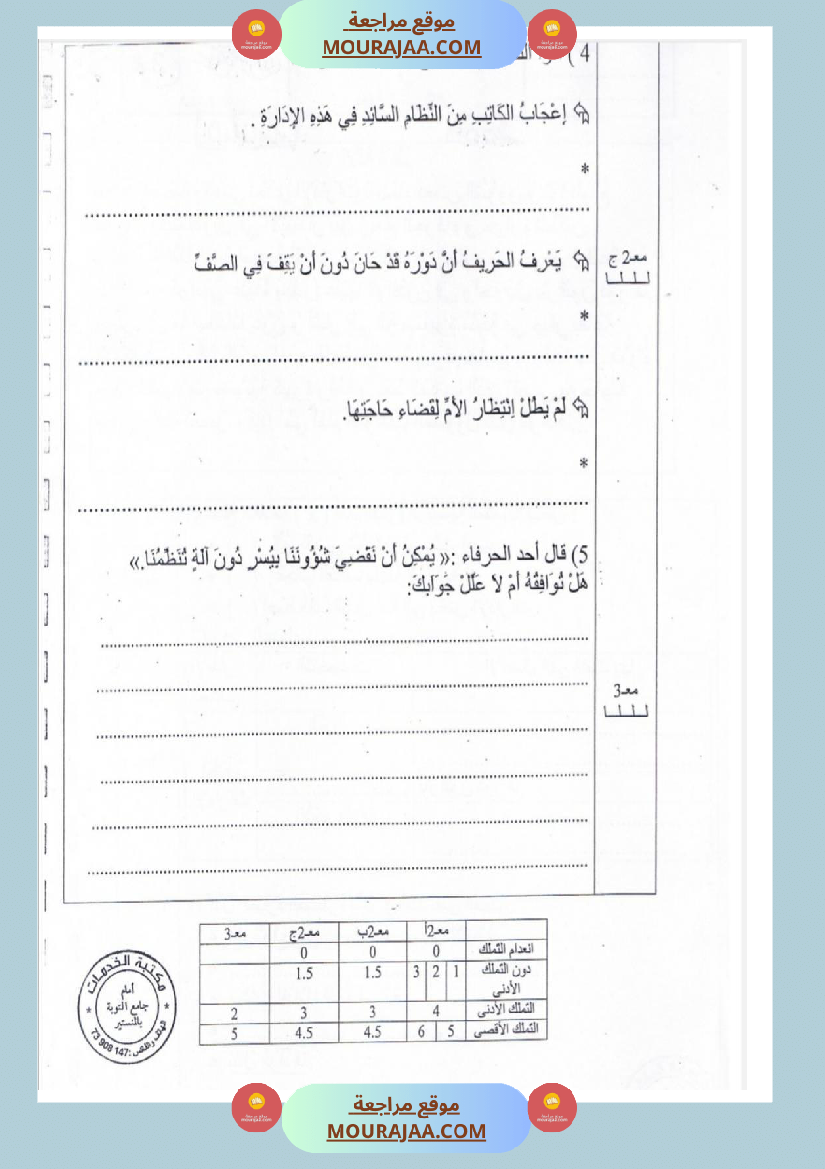 موقع مراجعة
MOURAJAA.COM
4 )
إعْجَابُ الكَاتِبِ مِنَ النِّظَامِ السَّائِدِ فِي هَذِهِ الإدَارَةِ .
*
يَعْرِفُ الحَرِيفُ أنَّ دَوْرَهُ قَدْ حَانَ دُونَ أنْ يَقِفَ فِي الصَّفِّ
معـ2 ج
*
لَمْ يَطُلْ اِنْتِظَارُ الأمِّ لِقَضَاءِ حَاجَتِهَا.
*
5) قال أحد الحرفاء :« يُمْكِنُ أنْ نَقْضِيَ شُؤُونَنَا بِيُسْرٍ دُونَ آلَةٍ تُنَظِّمُنَا.»
هَلْ تُوَافِقُهُ أمْ لاَ عَلِّلْ جَوَابكَ:
معـ3
معـ2أ معـ2ب معـ2ج معـ3
انعدام التملك 0 0 0
دون التملك الأدنى 1 2 3 1.5 1.5
التملك الأدنى 4 3 3 2
التملك الأقصى 5 6 4.5 4.5 5
مكتبة الخدمات
أمام
جامع التوبة
بالمنستير
73 908 147
موقع مراجعة
MOURAJAA.COM